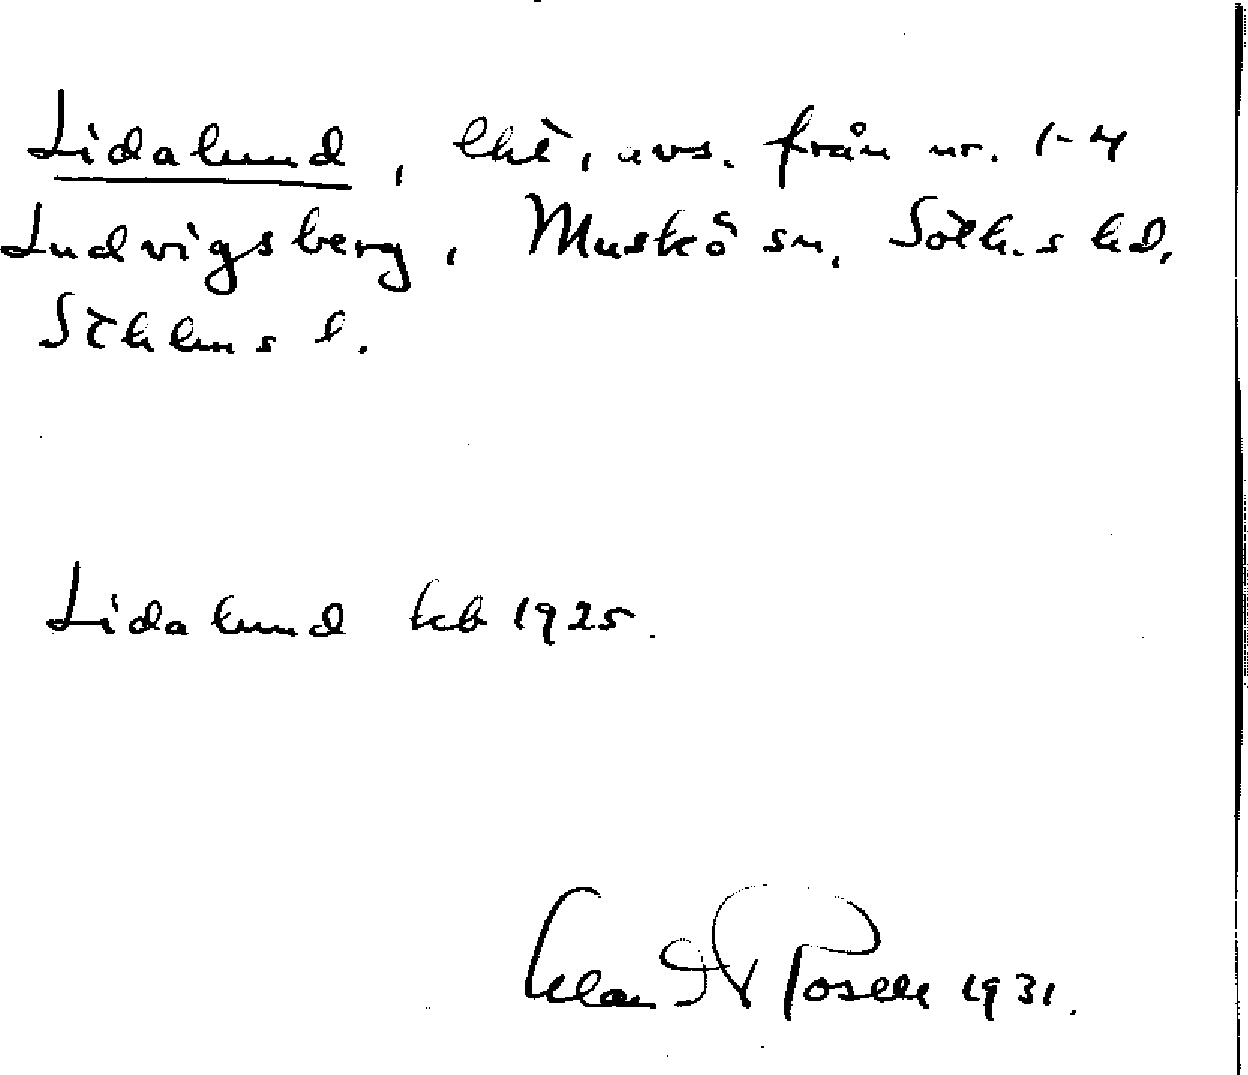 Lidalund, lht, avs. från nr. 1-4
Ludvigsberg, Muskö sn, Soth.s hd,
Sthlms l.
Lidalund kb 1925.
Posse 1931.